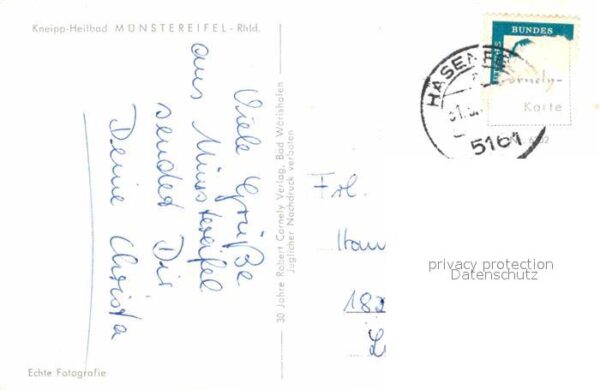 Kneipp-Heilbad MÜNSTEREIFEL - Rhld.
Viele Grüße
aus Münstereifel
sendet Dir
Deine Christa
Echte Fotografie
30 Jahre Robert Cornely Verlag, Bad Wörishofen
Jeglicher Nachdruck verboten
BUNDES
HASENF
5161
Cornely-
Karte
Frl.
Han
182
privacy protection
Datenschutz